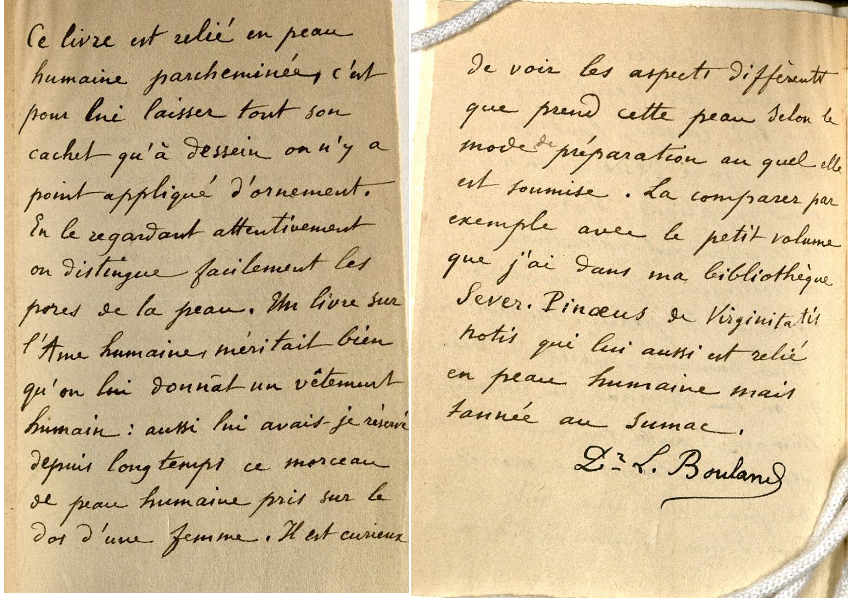 Ce livre est relié en peau
humaine parcheminée, c'est
pour lui laisser tout son
cachet qu'à dessein on n'y a
point appliqué d'ornement.
En le regardant attentivement
on distingue facilement les
pores de la peau. Un livre sur
l'Ame humaine, méritait bien
qu'on lui donnât un vêtement
humain : aussi lui avais-je réservé
depuis longtemps ce morceau
de peau humaine pris sur le
dos d'une femme. Il est curieux
de voir les aspects différents
que prend cette peau selon le
mode de préparation au quel elle
est soumise. La comparer par
exemple avec le petit volume
que j'ai dans ma bibliothèque
Sever. Pinœus de Virginitatis
notis qui lui aussi est relié
en peau humaine mais
tannée au sumac.
Dr L. Bouland